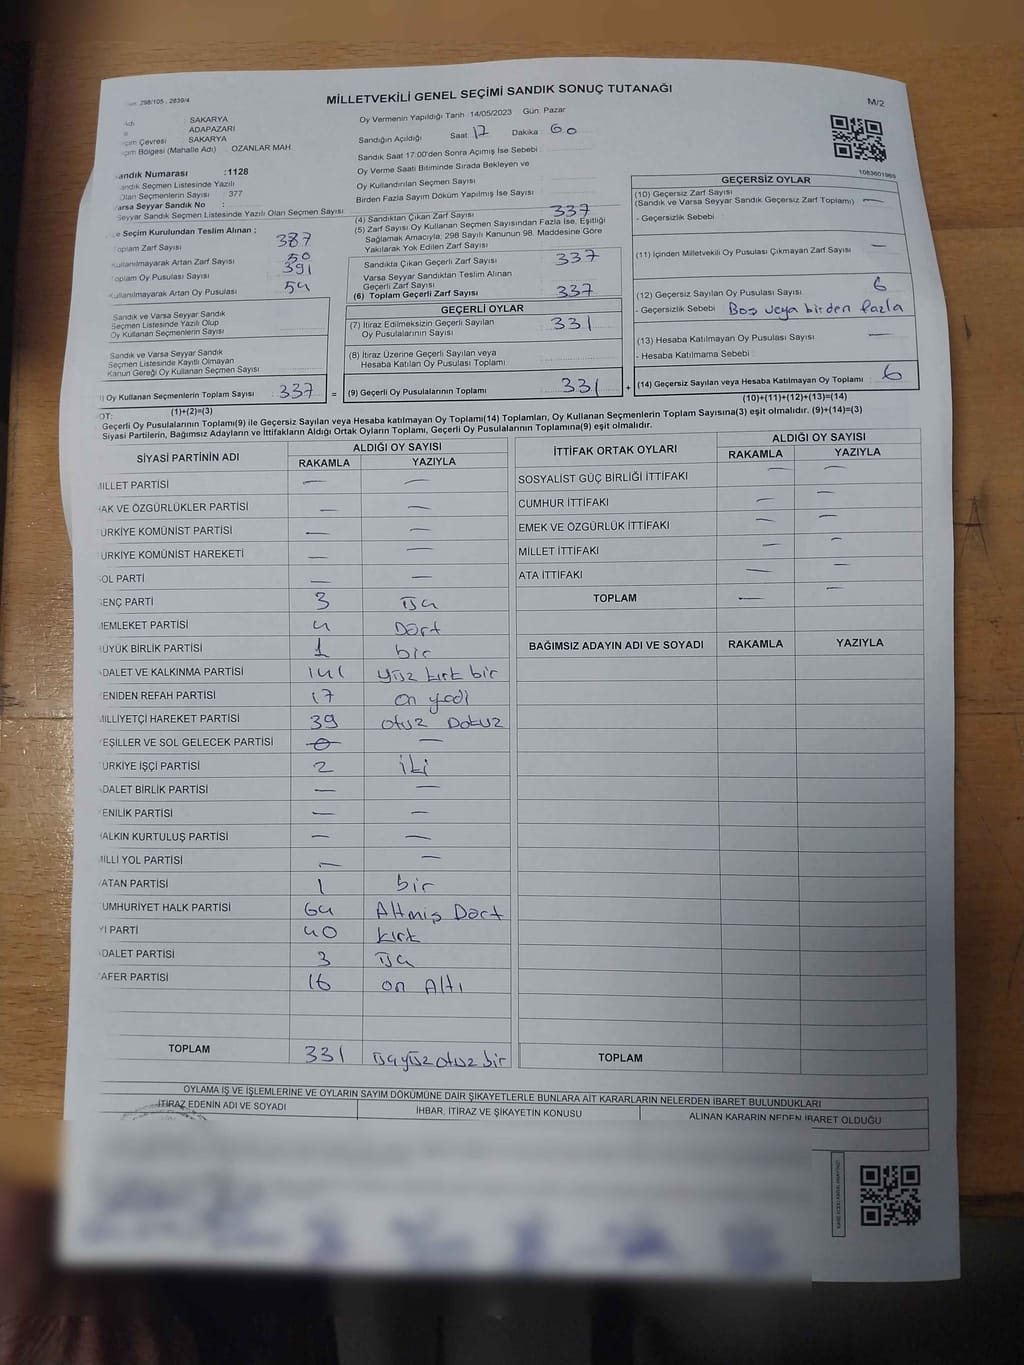 298/105 , 2839/4
MİLLETVEKİLİ GENEL SEÇİMİ SANDIK SONUÇ TUTANAĞI
M/2
SAKARYA
ADAPAZARI
çim Çevresi SAKARYA
çim Bölgesi (Mahalle Adı) OZANLAR MAH
andık Numarası :1128
andık Seçmen Listesinde Yazılı
Olan Seçmenlerin Sayısı : 377
Varsa Seyyar Sandık No :
Seyyar Sandık Seçmen Listesinde Yazılı Olan Seçmen Sayısı
e Seçim Kurulundan Teslim Alınan ;
Toplam Zarf Sayısı 387
Kullanılmayarak Artan Zarf Sayısı 50
Toplam Oy Pusulası Sayısı 391
Kullanılmayarak Artan Oy Pusulası 54
Sandık ve Varsa Seyyar Sandık
Seçmen Listesinde Yazılı Olup
Oy Kullanan Seçmenlerin Sayısı
Sandık ve Varsa Seyyar Sandık
Seçmen Listesinde Kayıtlı Olmayan
Kanun Gereği Oy Kullanan Seçmen Sayısı
) Oy Kullanan Seçmenlerin Toplam Sayısı 337
(1)+(2)=(3)
Oy Vermenin Yapıldığı Tarih 14/05/2023 Gün: Pazar
Sandığın Açıldığı Saat: 17 Dakika : 60
Sandık Saat 17:00'den Sonra Açımış İse Sebebi :
Oy Verme Saati Bitiminde Sırada Bekleyen ve
Oy Kullandırılan Seçmen Sayısı
Birden Fazla Sayım Döküm Yapılmış İse Sayısı
(4) Sandıktan Çıkan Zarf Sayısı 337
(5) Zarf Sayısı Oy Kullanan Seçmen Sayısından Fazla İse, Eşitliği
Sağlamak Amacıyla; 298 Sayılı Kanunun 98. Maddesine Göre
Yakılarak Yok Edilen Zarf Sayısı
Sandıkta Çıkan Geçerli Zarf Sayısı 337
Varsa Seyyar Sandıktan Teslim Alınan
Geçerli Zarf Sayısı
(6) Toplam Geçerli Zarf Sayısı 337
GEÇERLİ OYLAR
(7) İtiraz Edilmeksizin Geçerli Sayılan
Oy Pusulalarının Sayısı 331
(8) İtiraz Üzerine Geçerli Sayılan veya
Hesaba Katılan Oy Pusulası Toplamı
= (9) Geçerli Oy Pusulalarının Toplamı 331 +
1083601969
GEÇERSİZ OYLAR
(10) Geçersiz Zarf Sayısı
(Sandık ve Varsa Seyyar Sandık Geçersiz Zarf Toplamı) —
- Geçersizlik Sebebi :
(11) İçinden Milletvekili Oy Pusulası Çıkmayan Zarf Sayısı —
(12) Geçersiz Sayılan Oy Pusulası Sayısı 6
- Geçersizlik Sebebi Boş veya birden fazla
(13) Hesaba Katılmayan Oy Pusulası Sayısı —
- Hesaba Katılmama Sebebi
(14) Geçersiz Sayılan veya Hesaba Katılmayan Oy Toplamı 6
(10)+(11)+(12)+(13)=(14)
OT:
Geçerli Oy Pusulalarının Toplamı(9) ile Geçersiz Sayılan veya Hesaba katılmayan Oy Toplamı(14) Toplamları, Oy Kullanan Seçmenlerin Toplam Sayısına(3) eşit olmalıdır. (9)+(14)=(3)
Siyasi Partilerin, Bağımsız Adayların ve İttifakların Aldığı Ortak Oyların Toplamı, Geçerli Oy Pusulalarının Toplamına(9) eşit olmalıdır.
SİYASİ PARTİNİN ADI ALDIĞI OY SAYISI
RAKAMLA YAZIYLA
MİLLET PARTİSİ — —
HAK VE ÖZGÜRLÜKLER PARTİSİ — —
ÜRKİYE KOMÜNİST PARTİSİ — —
ÜRKİYE KOMÜNİST HAREKETİ — —
SOL PARTİ — —
GENÇ PARTİ 3 üç
MEMLEKET PARTİSİ 4 Dört
BÜYÜK BİRLİK PARTİSİ 1 bir
ADALET VE KALKINMA PARTİSİ 141 yüz kırk bir
YENİDEN REFAH PARTİSİ 17 on yedi
MİLLİYETÇİ HAREKET PARTİSİ 39 otuz Dokuz
YEŞİLLER VE SOL GELECEK PARTİSİ 0 —
ÜRKİYE İŞÇİ PARTİSİ 2 iki
ADALET BİRLİK PARTİSİ — —
YENİLİK PARTİSİ — —
HALKIN KURTULUŞ PARTİSİ — —
MİLLİ YOL PARTİSİ — —
VATAN PARTİSİ 1 bir
CUMHURİYET HALK PARTİSİ 64 Altmış Dört
İYİ PARTİ 40 kırk
ADALET PARTİSİ 3 üç
ZAFER PARTİSİ 16 on Altı
TOPLAM 331 üçyüz otuz bir
İTTİFAK ORTAK OYLARI ALDIĞI OY SAYISI
RAKAMLA YAZIYLA
SOSYALİST GÜÇ BİRLİĞİ İTTİFAKI — —
CUMHUR İTTİFAKI — —
EMEK VE ÖZGÜRLÜK İTTİFAKI — —
MİLLET İTTİFAKI — —
ATA İTTİFAKI — —
TOPLAM — —
BAĞIMSIZ ADAYIN ADI VE SOYADI RAKAMLA YAZIYLA
TOPLAM
OYLAMA İŞ VE İŞLEMLERİNE VE OYLARIN SAYIM DÖKÜMÜNE DAİR ŞİKAYETLERLE BUNLARA AİT KARARLARIN NELERDEN İBARET BULUNDUKLARI
İTİRAZ EDENİN ADI VE SOYADI İHBAR, İTİRAZ VE ŞİKAYETİN KONUSU ALINAN KARARIN NEDEN İBARET OLDUĞU